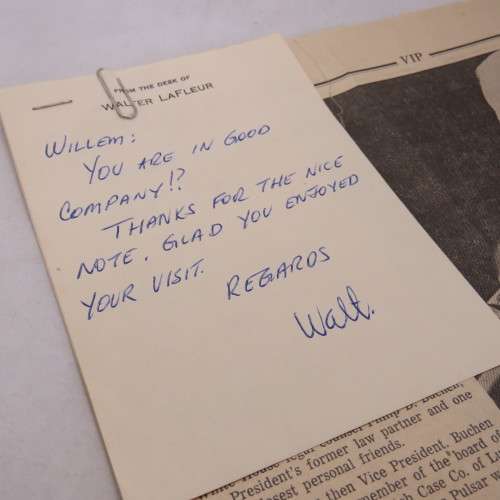 VIP
FROM THE DESK OF
WALTER LAFLEUR
WILLEM:
YOU ARE IN GOOD
COMPANY!?
THANKS FOR THE NICE
NOTE. GLAD YOU ENJOYED
YOUR VISIT.
REGARDS
Walt.
White House legal counsel Philip D. Buchen,
President's former law partner and one
closest personal friends.
then Vice President, Buchen
member of the board of
Case Co. of
Pulsar